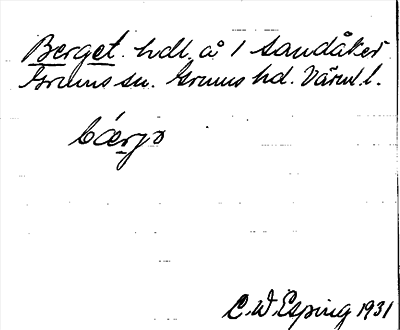 Berget. hdl. å 1 Sandåker
Grums sn. Grums hd. Värml. l.
bærjə
C. W. Esping 1931